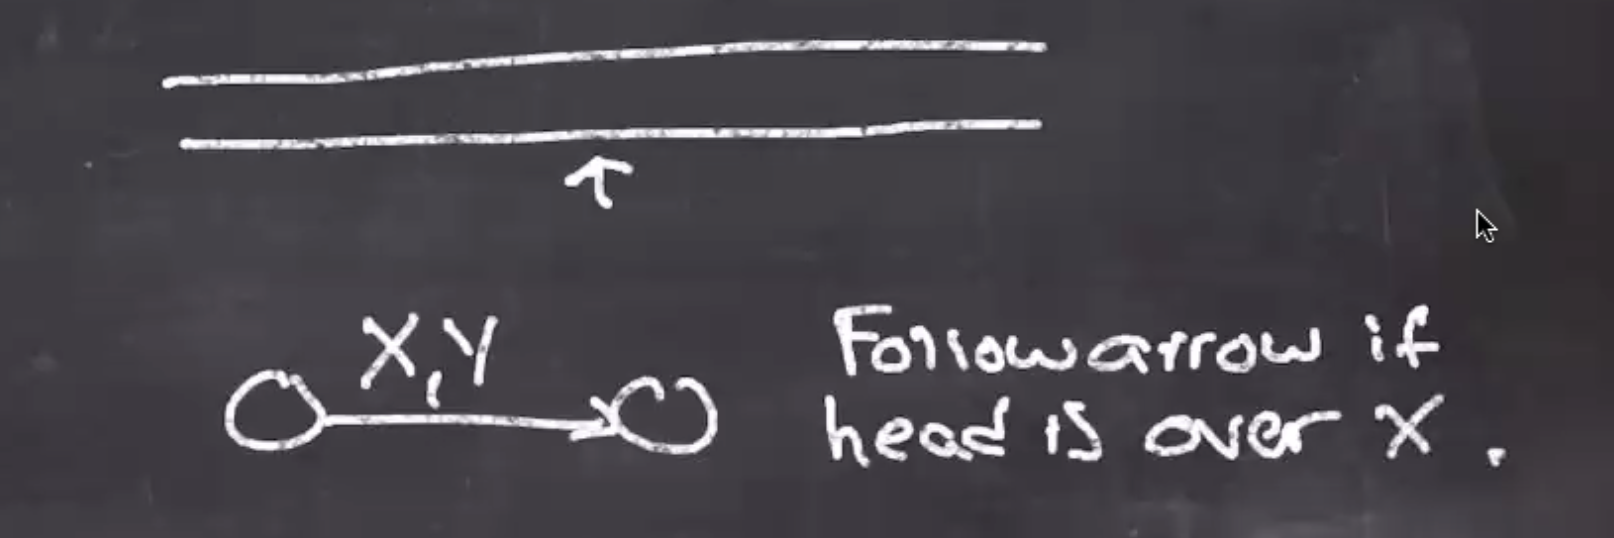 X,Y
Follow arrow if
head is over X.